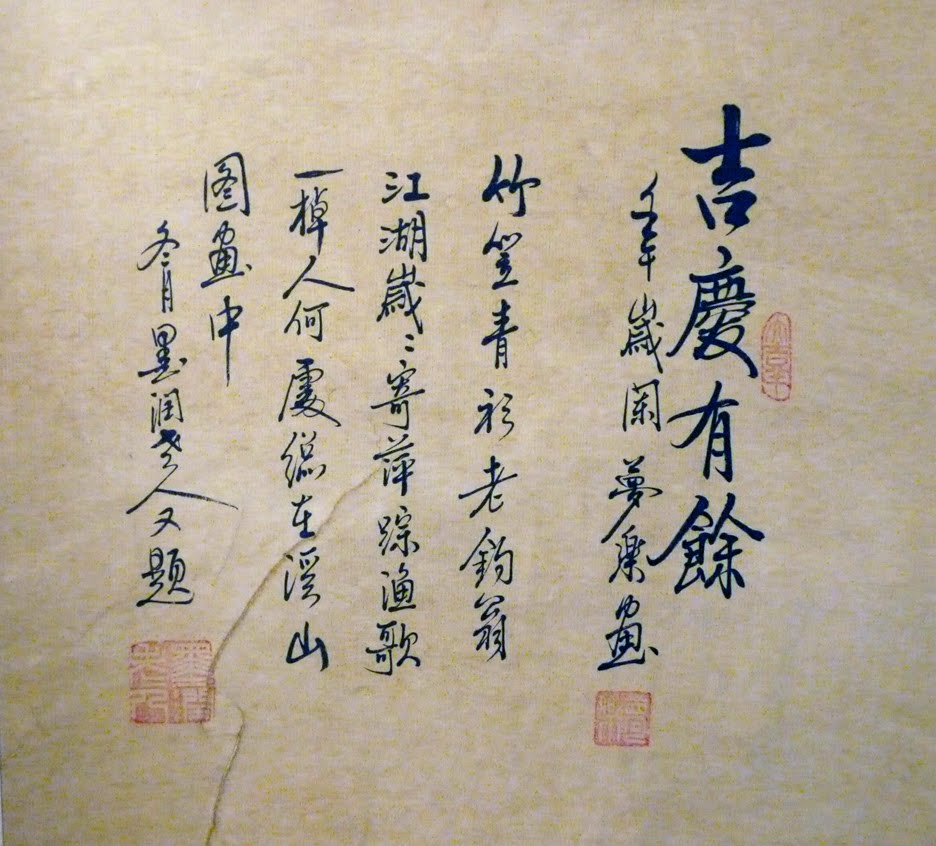 吉慶有餘
壬午歲闌夢樂畫
竹笠青衫老釣翁
江湖歲〻寄萍踪漁歌
一棹人何處總在溪山
图畫中
冬月墨润老人又題